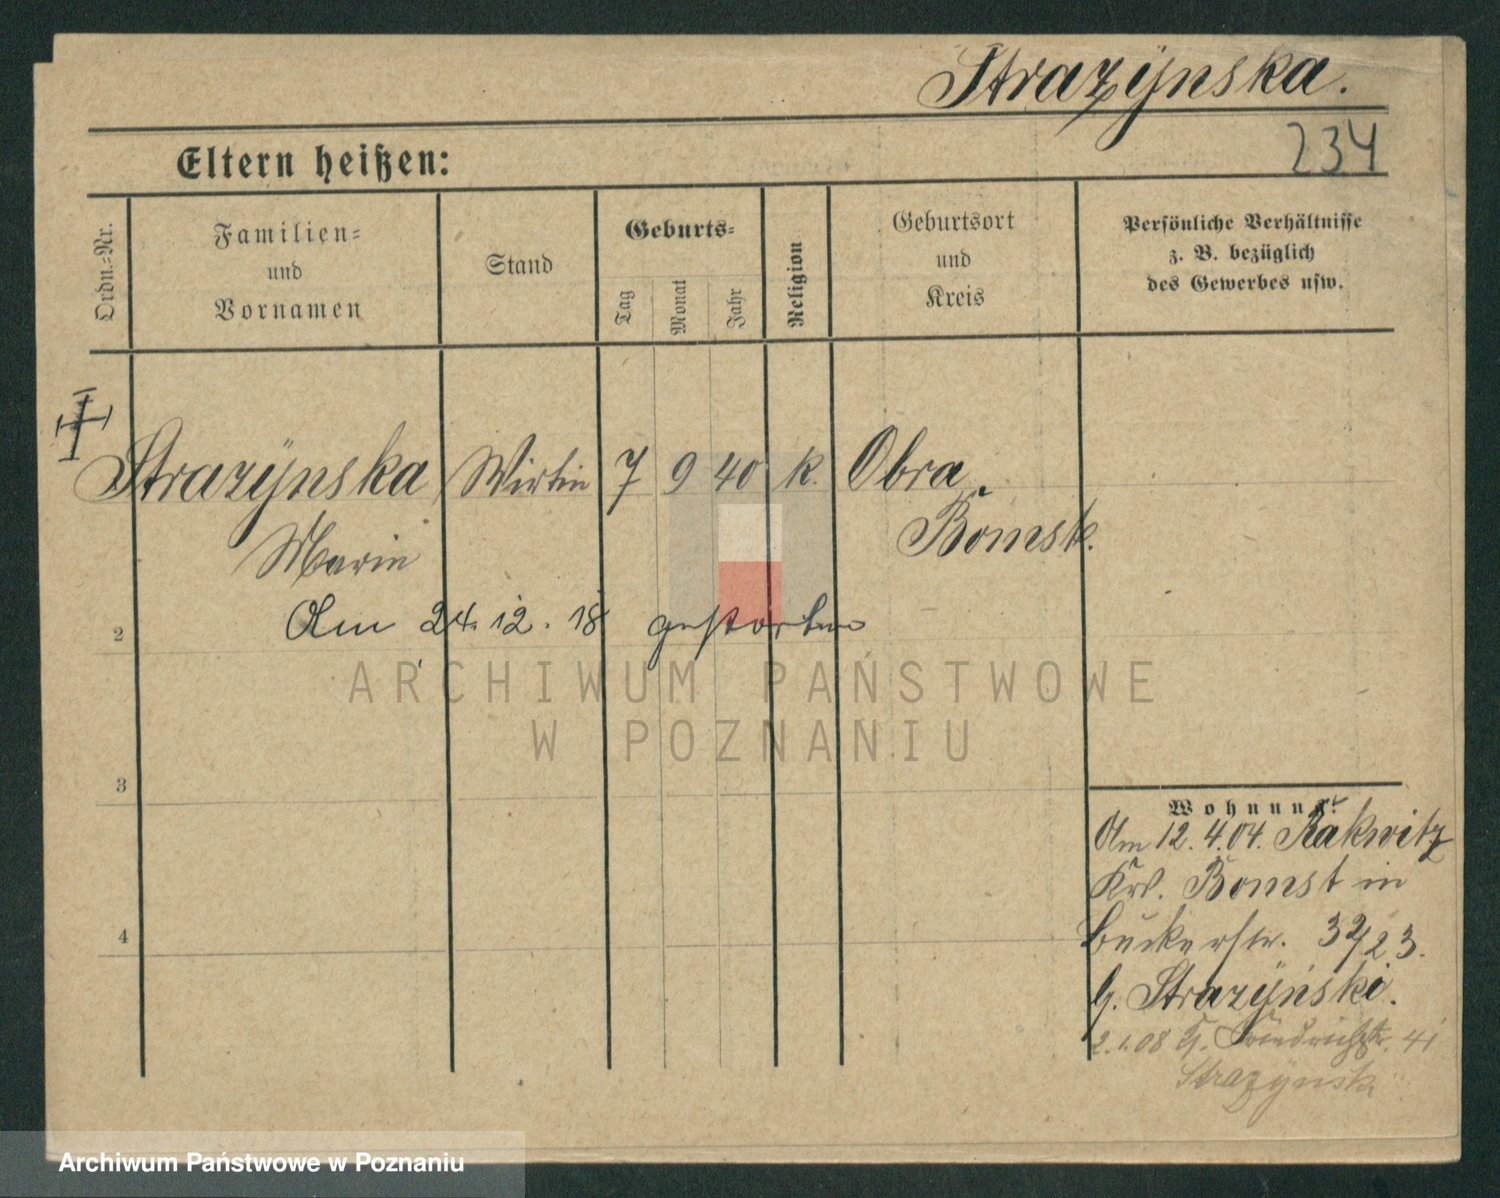 Strazÿnska.
234
Eltern heißen:
Ordn.-Nr.
Familien-
und
Vornamen
Stand
Geburts-
Tag
Monat
Jahr
Religion
Geburtsort
und
Kreis
Persönliche Verhältnisse
z. B. bezüglich
des Gewerbes usw.
Strazÿnska Wirtin 7 9 40 k. Obra
Marie Bomst.
Am 24. 12. 18 gestorben
2
3
4
Wohnung:
Am 12. 4. 04. Rakwitz
Krs. Bomst in
Buckerstr. 32/23.
b. Strazÿnski.
2.1.08 Friedrichstr. 41
Strazÿnsk
ARCHIWUM PAŃSTWOWE
W POZNANIU
Archiwum Państwowe w Poznaniu